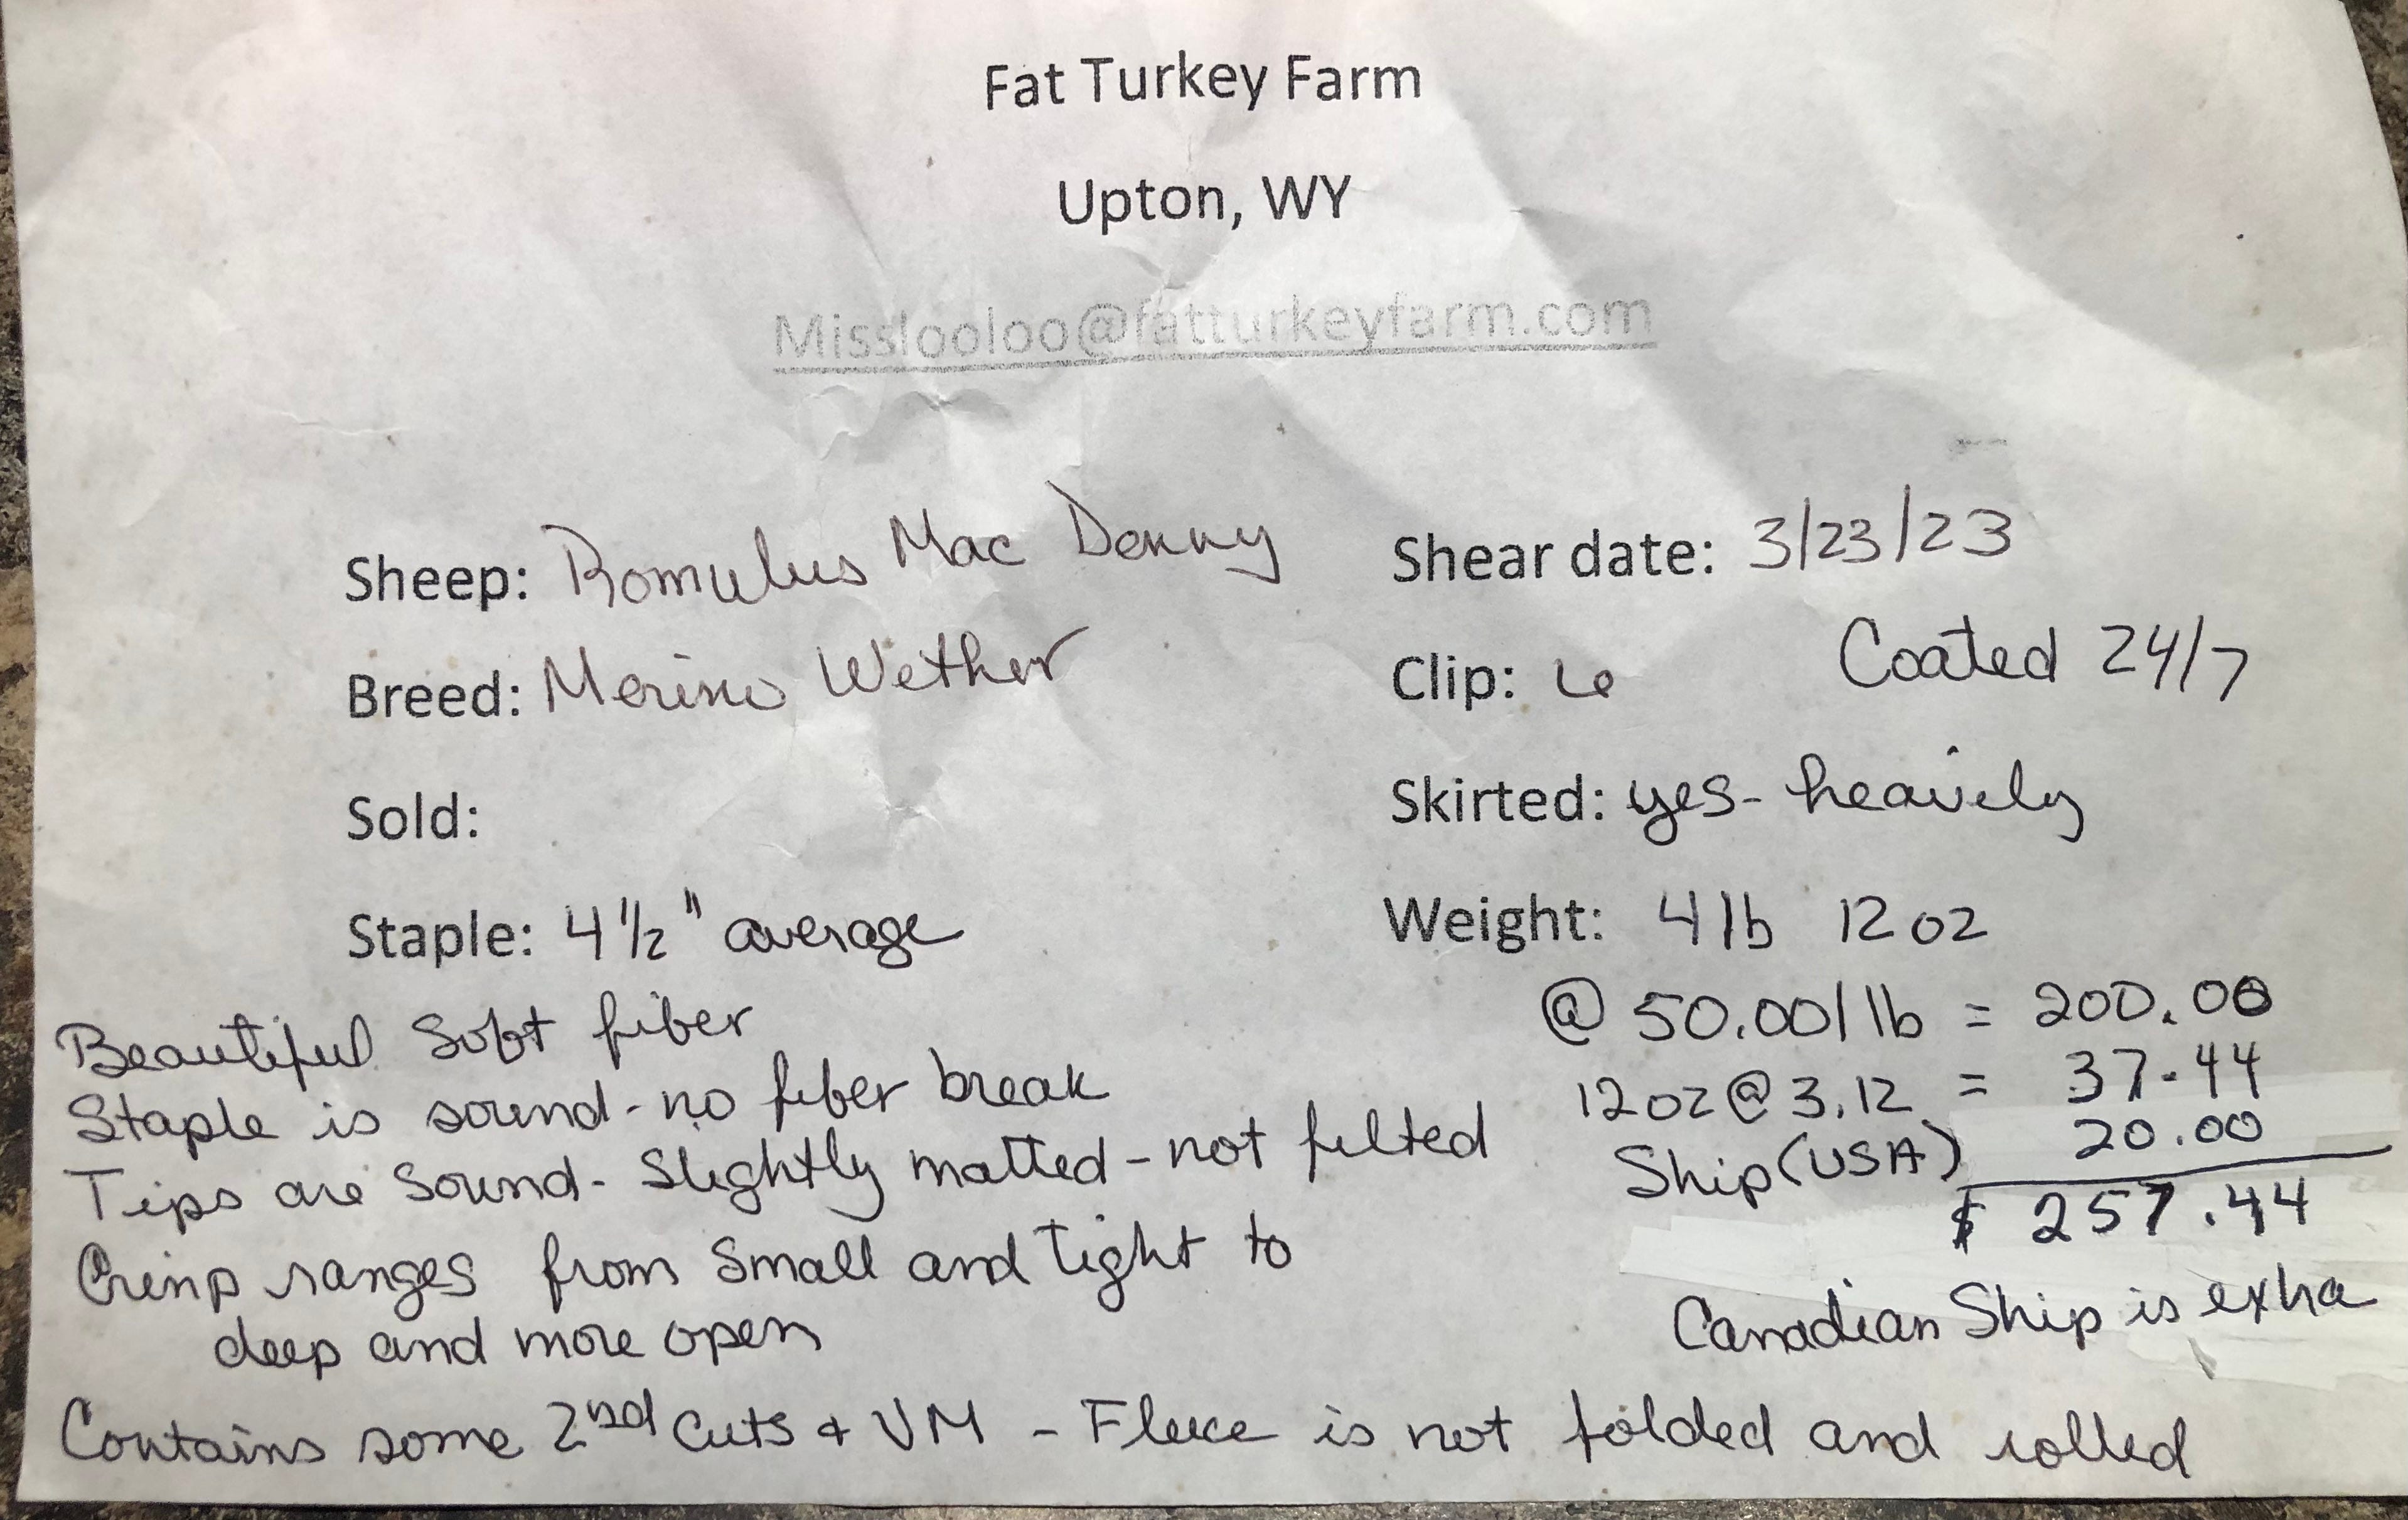 Fat Turkey Farm
Upton, WY
Misslooloo@fatturkeyfarm.com
Sheep: Romulus Mac Denny
Shear date: 3/23/23
Breed: Merino Wether
Clip: 6
Coated 24/7
Sold:
Skirted: yes - heavily
Staple: 4 1/2" average
Weight: 4 lb 12 oz
@ 50.00/lb = 200.00
12 oz @ 3.12 = 37.44
Ship (USA) 20.00
$ 257.44
Canadian Ship is extra
Beautiful Soft fiber
Staple is sound - no fiber break
Tips are Sound - Slightly matted - not felted
Crimp ranges from Small and Tight to
deep and more open
Contains some 2nd Cuts + VM - Fleece is not folded and rolled